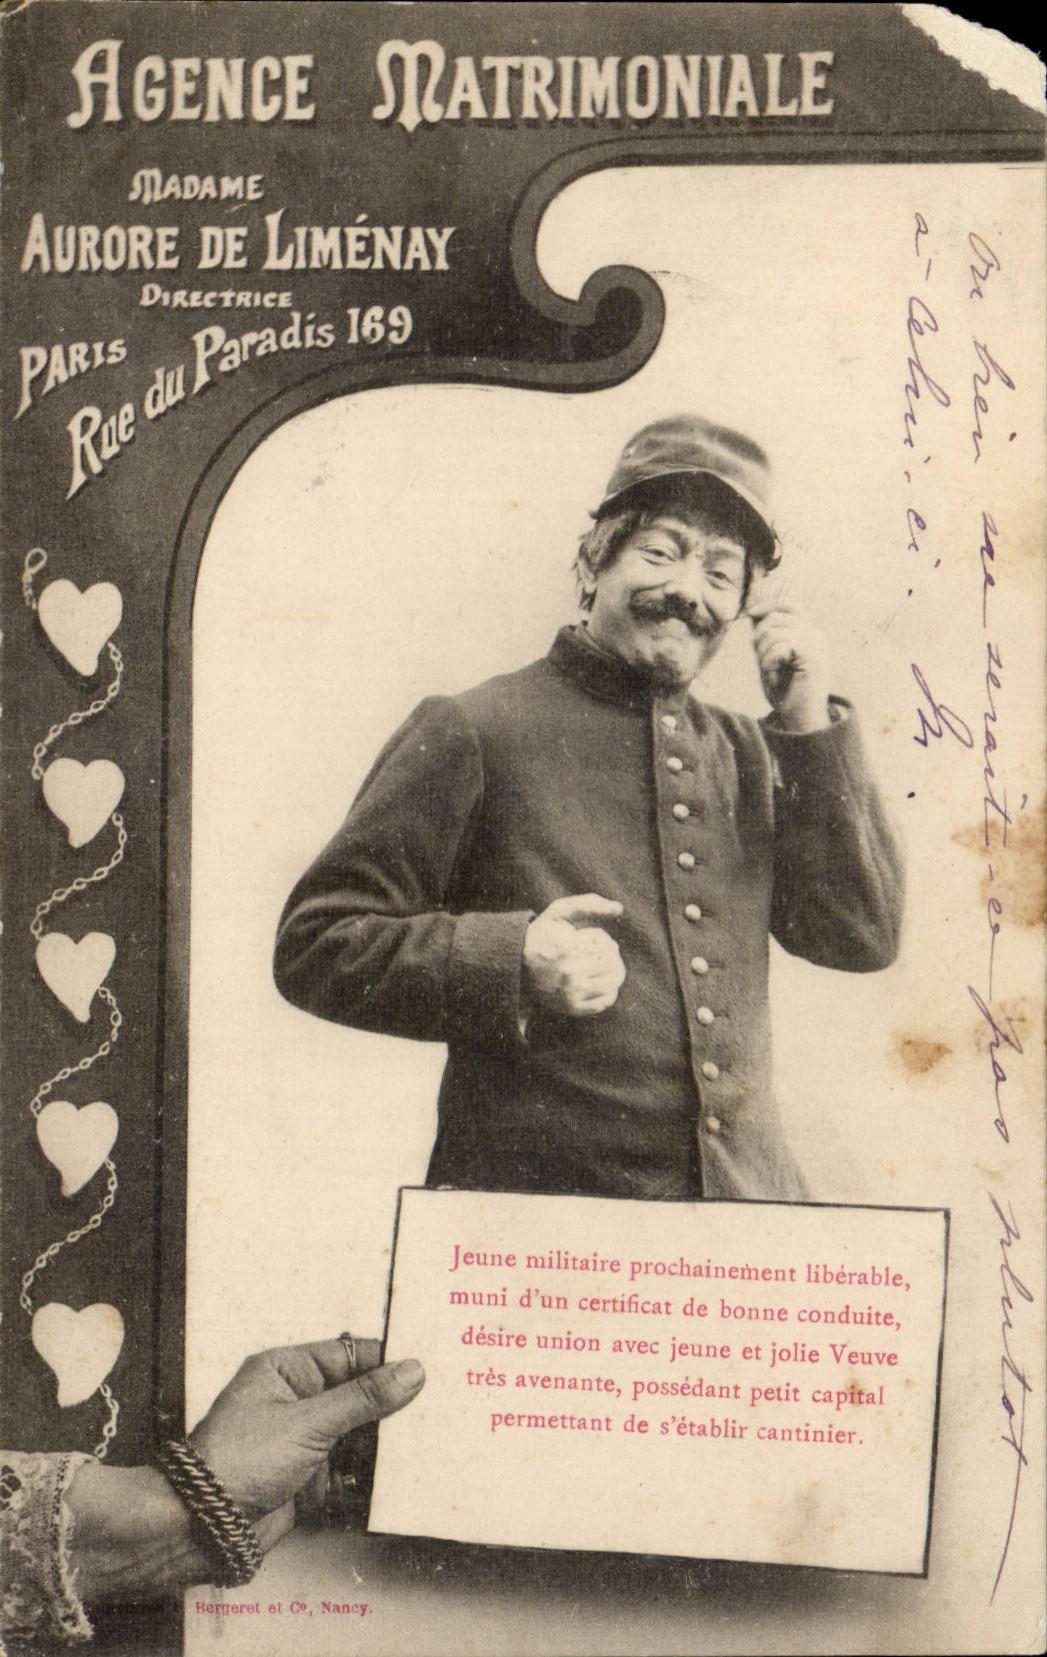 AGENCE MATRIMONIALE
MADAME
AURORE DE LIMÉNAY
DIRECTRICE
PARIS
Rue du Paradis 169
Jeune militaire prochainement libérable,
muni d'un certificat de bonne conduite,
désire union avec jeune et jolie Veuve
très avenante, possédant petit capital
permettant de s'établir cantinier.
Bergeret et Cº, Nancy.
Ou bien ne serait-ce pas plutot
à celui-ci.